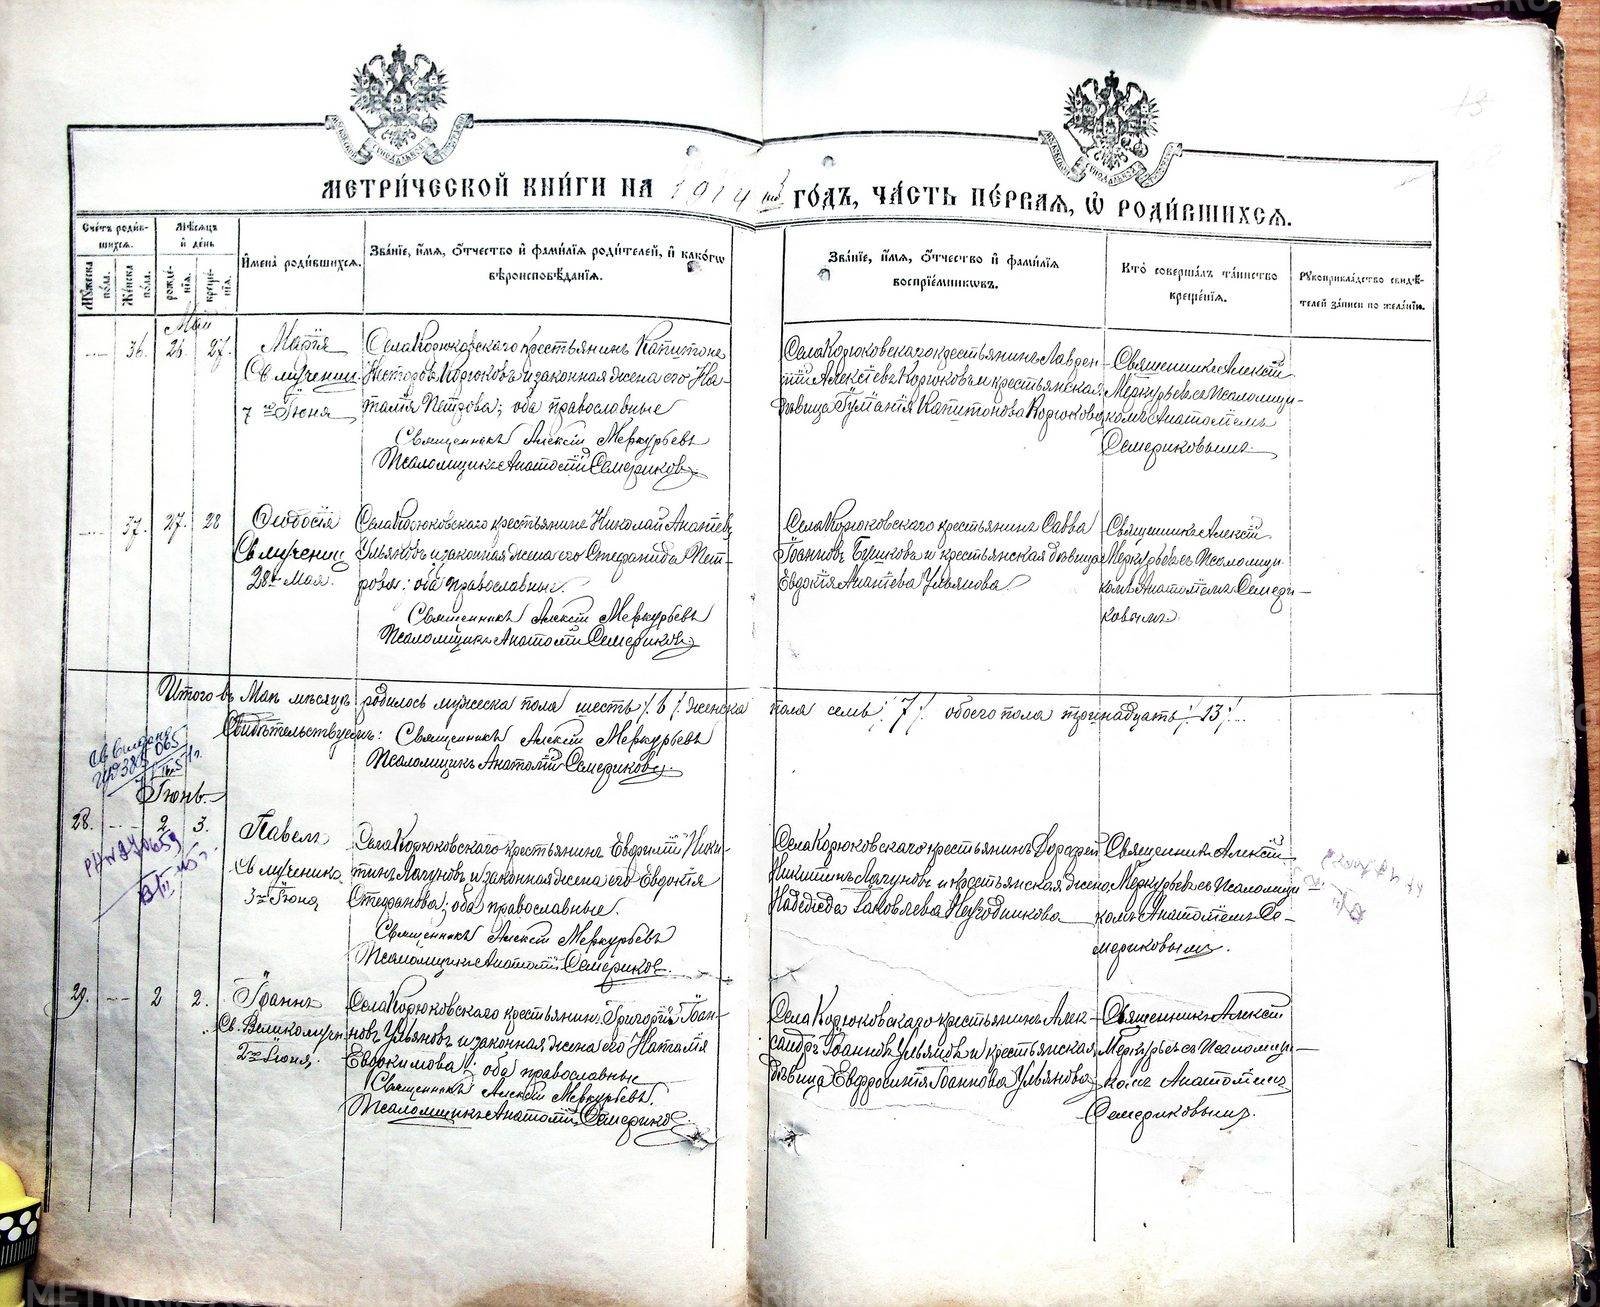 МЕТРИ́ЧЕСКОЙ КНИ́ГИ НА 1914 год ГО́ДЪ, ЧА́СТЬ ПЕ́РВАЯ, Ѡ҆ РОДИ́ВШИХСЯ.
Сче́тъ роди́в-
шихся.
Мѣ́сяцъ
и҆ де́нь
Мꙋ́жеска
по́ла.
Же́нска
по́ла.
рожде́-
нїя.
креще́-
нїя.
И҆мена̀ роди́вшихся.
Зва́нїе, и҆́мя, ѻ҆́тчество и҆ фами́лїя роди́телей, и҆ како́гѡ
вѣроисповѣ́данїя.
Зва́нїе, и҆́мя, ѻ҆́тчество и҆ фами́лїя
воспрїе́мникѡвъ.
Кто̀ соверша́лъ та́инство
креще́нїя.
Рꙋкоприкла́дство свидѣ́-
телей за́писи по жела́нїю.
Май
36. 26 27.
Марія
Св мученицы
7го Іюня
Села Корюковскаго крестьянинъ Капитонъ
Несторовъ Корюковъ и законная жена его На-
талія Петрова; оба православные
Священникъ Алексій Меркурьевъ
Псаломщикъ Анатолій Семериковъ
Села Корюковскаго крестьянинъ Лаврен-
тій Алексіевъ Корюковъ и крестьянская
дѣвица Іуліанія Капитонова Корюкова
Священникъ Алексій
Меркурьевъ съ Псаломщи-
комъ Анатоліемъ
Семериковымъ.
37. 27. 28
Ѳеодосія
Св мученицы
28го Мая.
Села Корюковскаго крестьянинъ Николай Ананіевъ
Ульяновъ и законная жена его Стефанида Пет-
рова: оба православные.
Священникъ Алексій Меркурьевъ
Псаломщикъ Анатолій Семериковъ
Села Корюковскаго крестьянинъ Савва
Іоанновъ и крестьянская дѣвица
Евдокія Ананіева Ульянова
Священникъ Алексій
Меркурьевъ съ Псаломщи
комъ Анатоліемъ Семери-
ковымъ
Итого въ Маѣ мѣсяцѣ родилось мужеска пола шесть /6/ женска пола семь /7/ обоего пола тринадцать /13/.
Свидѣтельствуемъ: Священникъ Алексій Меркурьевъ
Псаломщикъ Анатолій Семериковъ
Іюнь
28. 2 3.
Павелъ
Св мученика
3го Іюня
Села Корюковскаго крестьянинъ Евфимій Ники-
тинъ Лагуновъ и законная жена его Евдокія
Стефанова; оба православные.
Священникъ Алексій Меркурьевъ
Псаломщикъ Анатолій Семериковъ.
Села Корюковскаго крестьянинъ Дорофей
Никитинъ Лагуновъ и крестьянская жена
Надежда Іаковлева
Священникъ Алексій
Меркурьевъ съ Псаломщи
комъ Анатоліемъ Се-
мериковымъ.
29. 2 2.
Іоаннъ
Св. Великомуч.
2го Іюня.
Села Корюковскаго крестьянинъ Григорій Іоан-
новъ Ульяновъ и законная жена его Наталія
Евдокимова: оба православные
Священникъ Алексій Меркурьевъ.
Псаломщикъ Анатолій Семериковъ
Села Корюковскаго крестьянинъ Алек-
сандръ Іоанновъ Ульяновъ и крестьянская
дѣвица Евфросинія Іоаннова Ульянова
Священникъ Алексій
Меркурьевъ съ Псаломщи-
комъ Анатоліемъ
Семериковымъ.